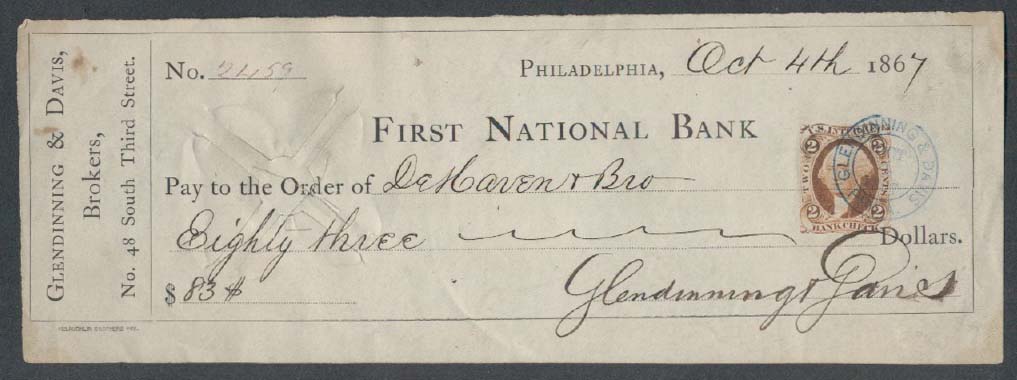 GLENDINNING & DAVIS,
Brokers,
No. 48 South Third Street.
No. 2459
PHILADELPHIA, Oct 4th 1867
FIRST NATIONAL BANK
Pay to the Order of DeHaven & Bro
Eighty three Dollars.
$ 83 #
Glendinning & Davis
U.S. INT
2 2
TWO CENTS
2 2
BANK CHECK
GLENDINNING & DAVIS